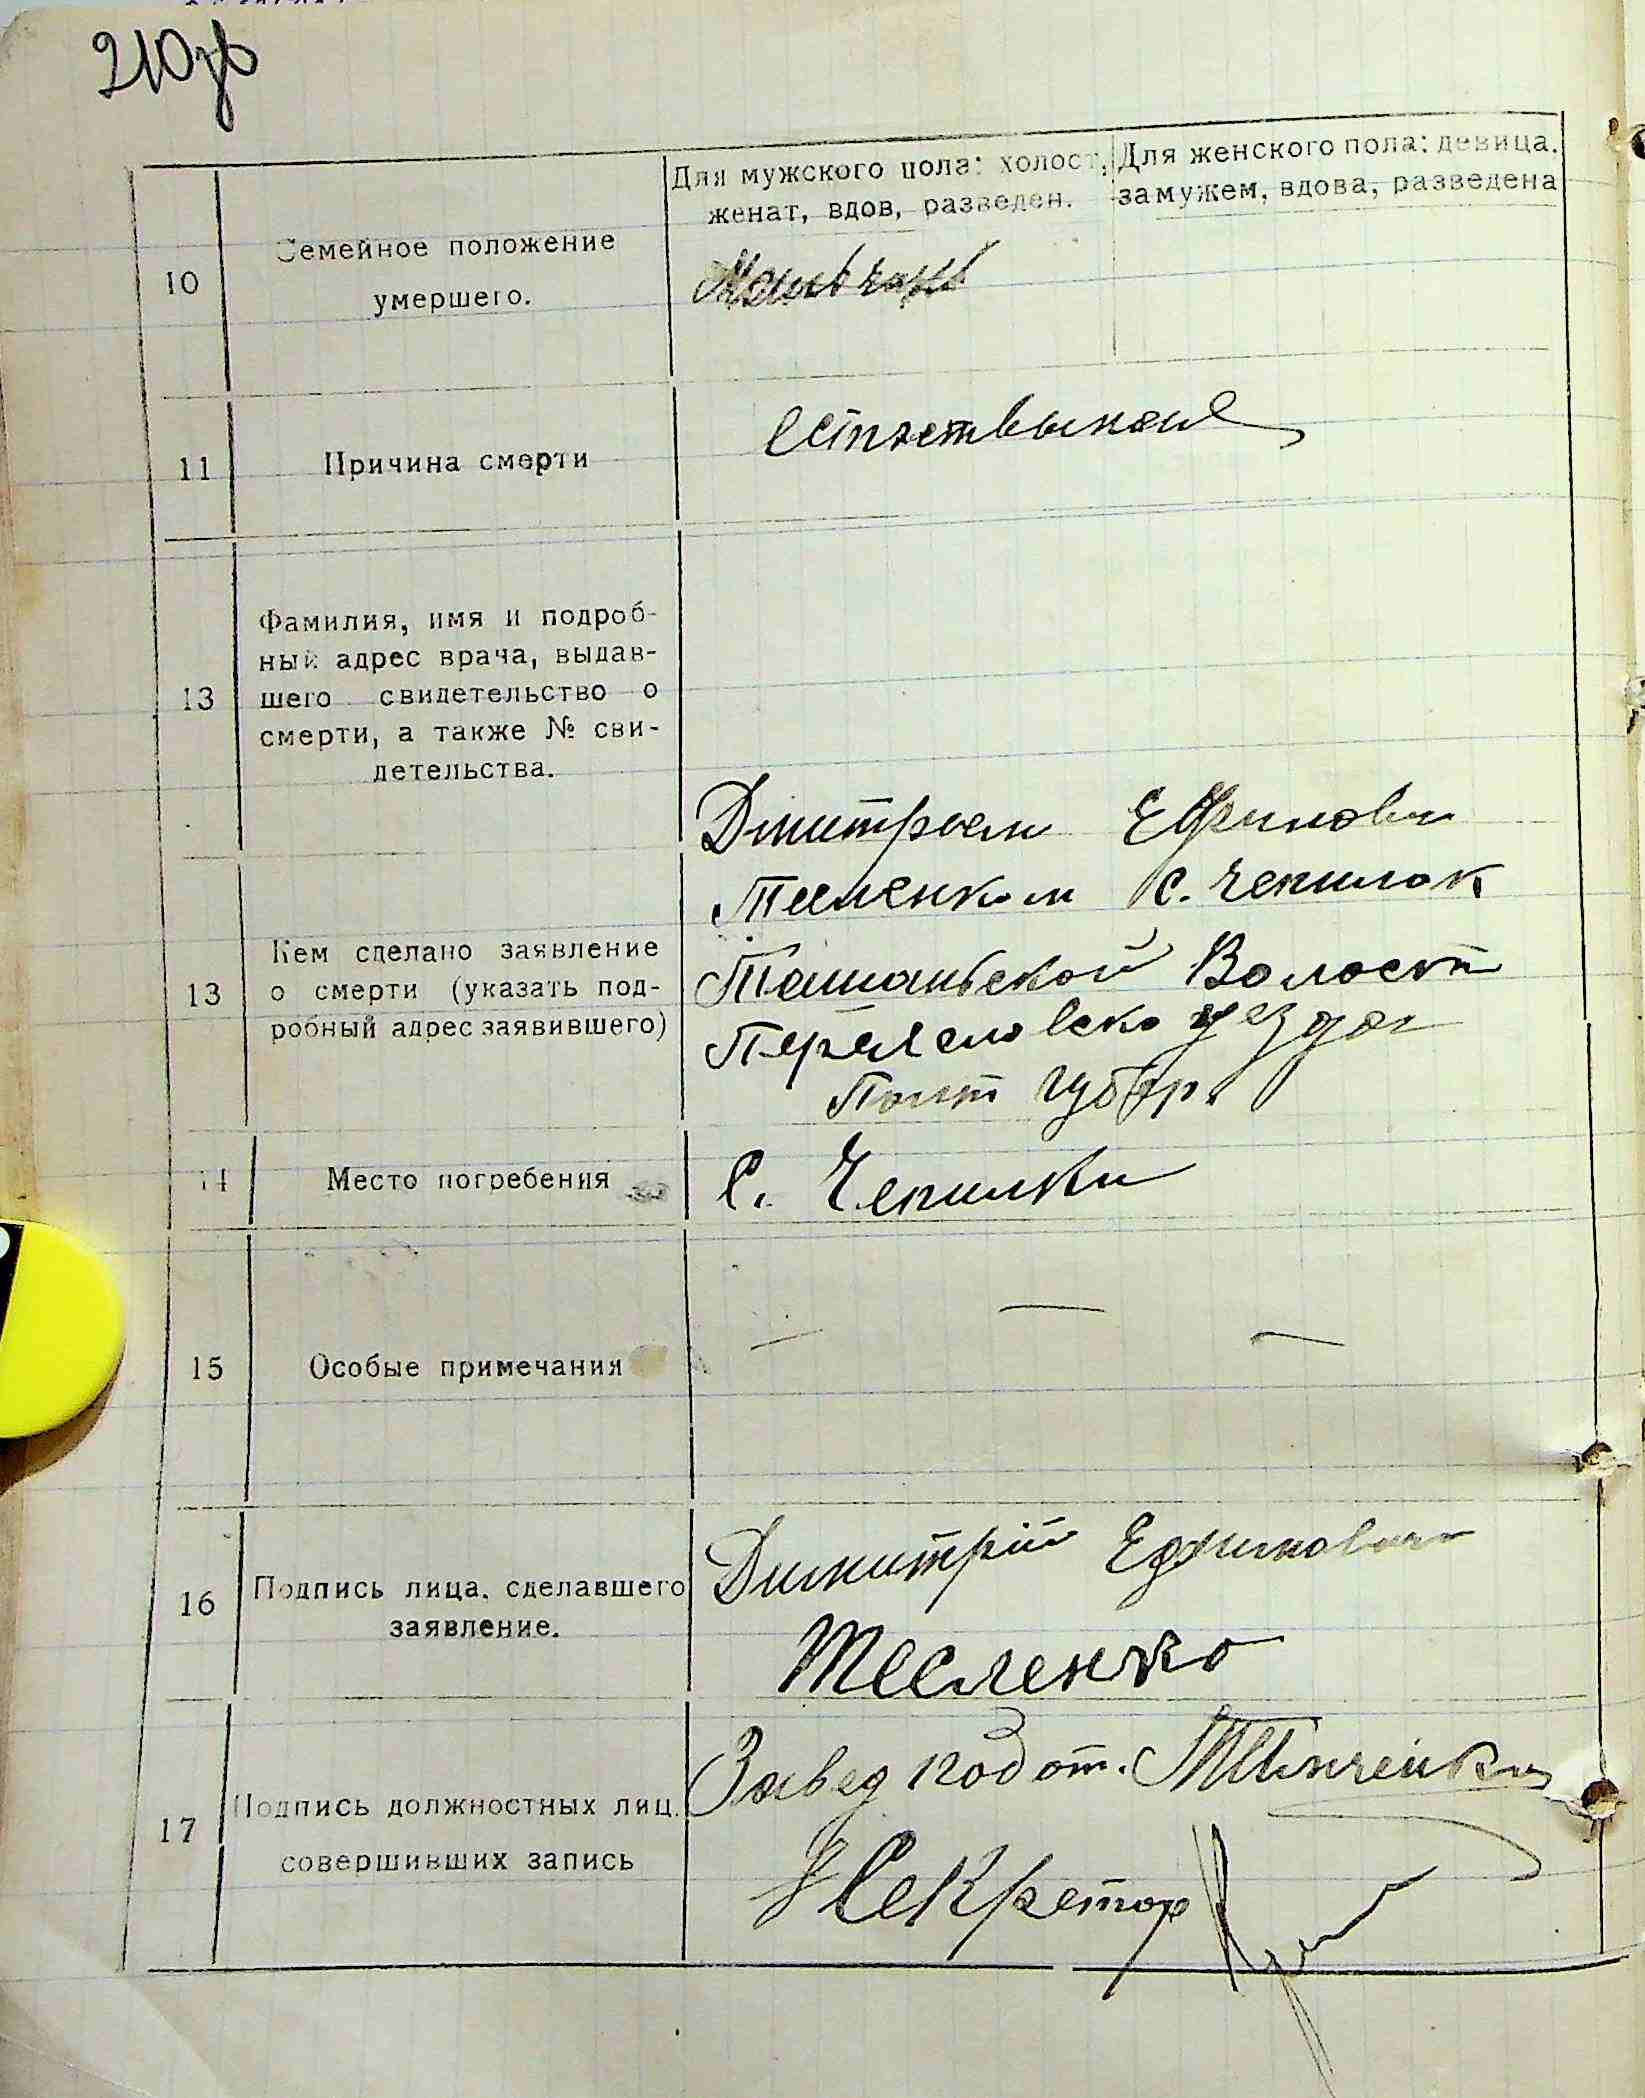 210зв
Для мужского пола: холост,
женат, вдов, разведен.
Для женского пола: девица,
замужем, вдова, разведена
10
Семейное положение
умершего.
11
Причина смерти
Естествынае
13
Фамилия, имя и подроб-
ный адрес врача, выдав-
шего свидетельство о
смерти, а также № сви-
детельства.
13
Кем сделано заявление
о смерти (указать под-
робный адрес заявившего)
Дмитрием Ефимови
Тесленком с. Чепилок
Ташаньской Волости
Переясловско уезда
Полт губер.
14
Место погребения
С. Чепилки
15
Особые примечания
— — —
16
Подпись лица, сделавшего
заявление.
Димитрій Ефимович
Тесленко
17
Подпись должностных лиц,
совершивших запись
Завед подот.
Секретар